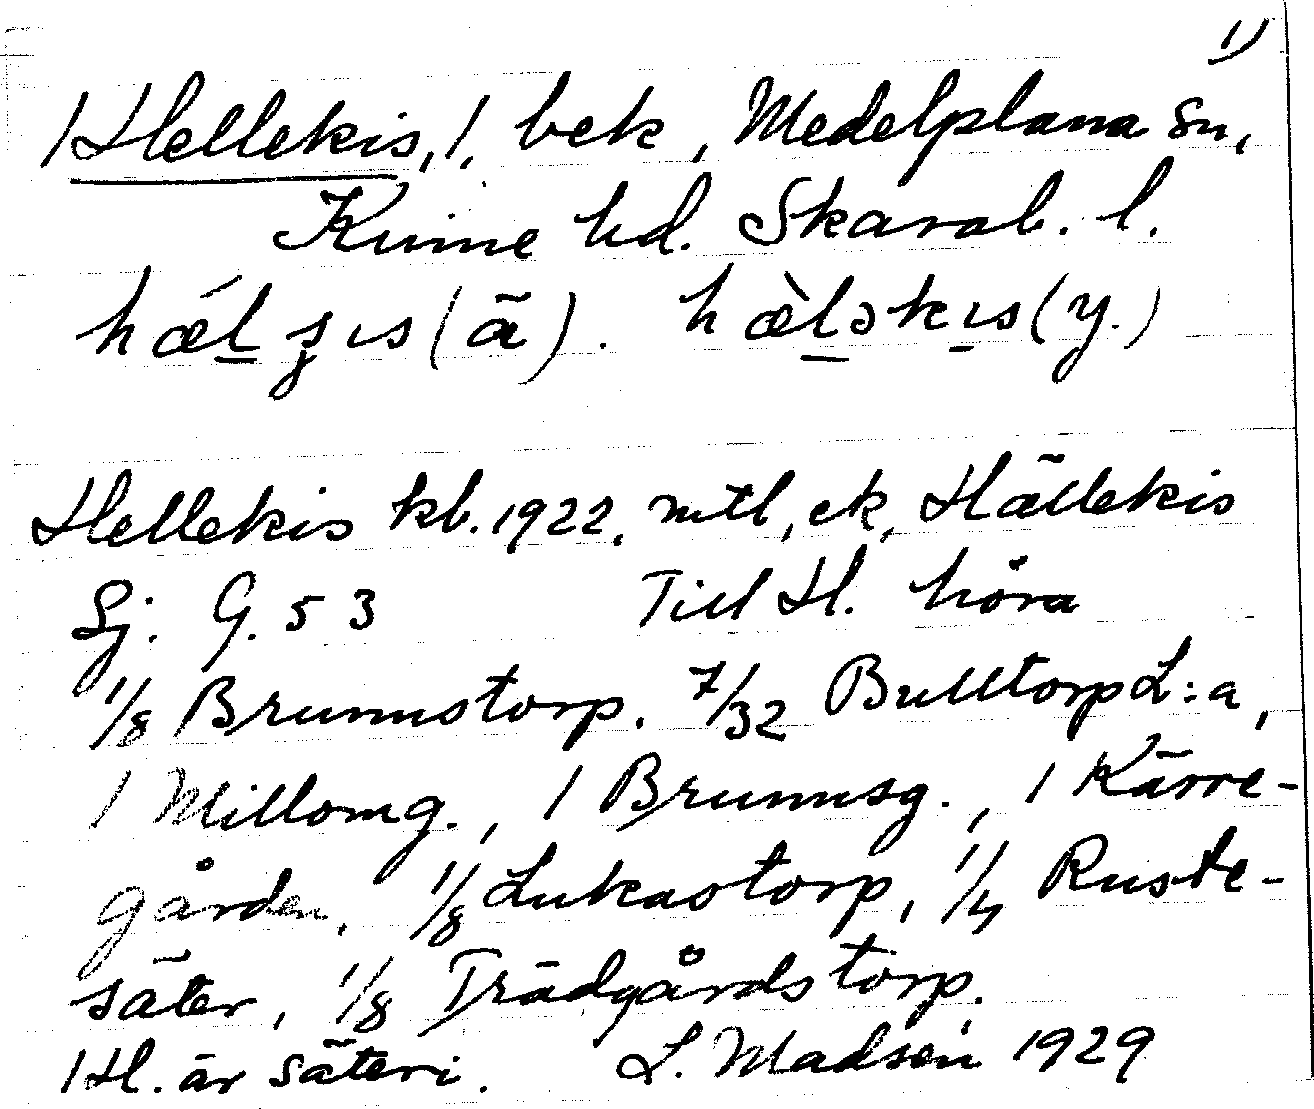 1)
1 Hellekis, 1, bek, Medelplana sn,
Kinne hd. Skarab. l.
hǽl̲ʂıs (ä). hæ̀l̲əkı̲s (y.)
Hellekis kb. 1922, mtl, ek, Hällekis
Sj. G. 53 Till H. höra
1/8 Brunnstorp. 7/32 Bulltorp L:a,
1 Millomg., 1 Brunnsg., 1 Kärre-
gården, 1/8 Lukastorp, 1/4 Ruste-
säter, 1/8 Trädgårdstorp.
H. är säteri. L. Madsén 1929